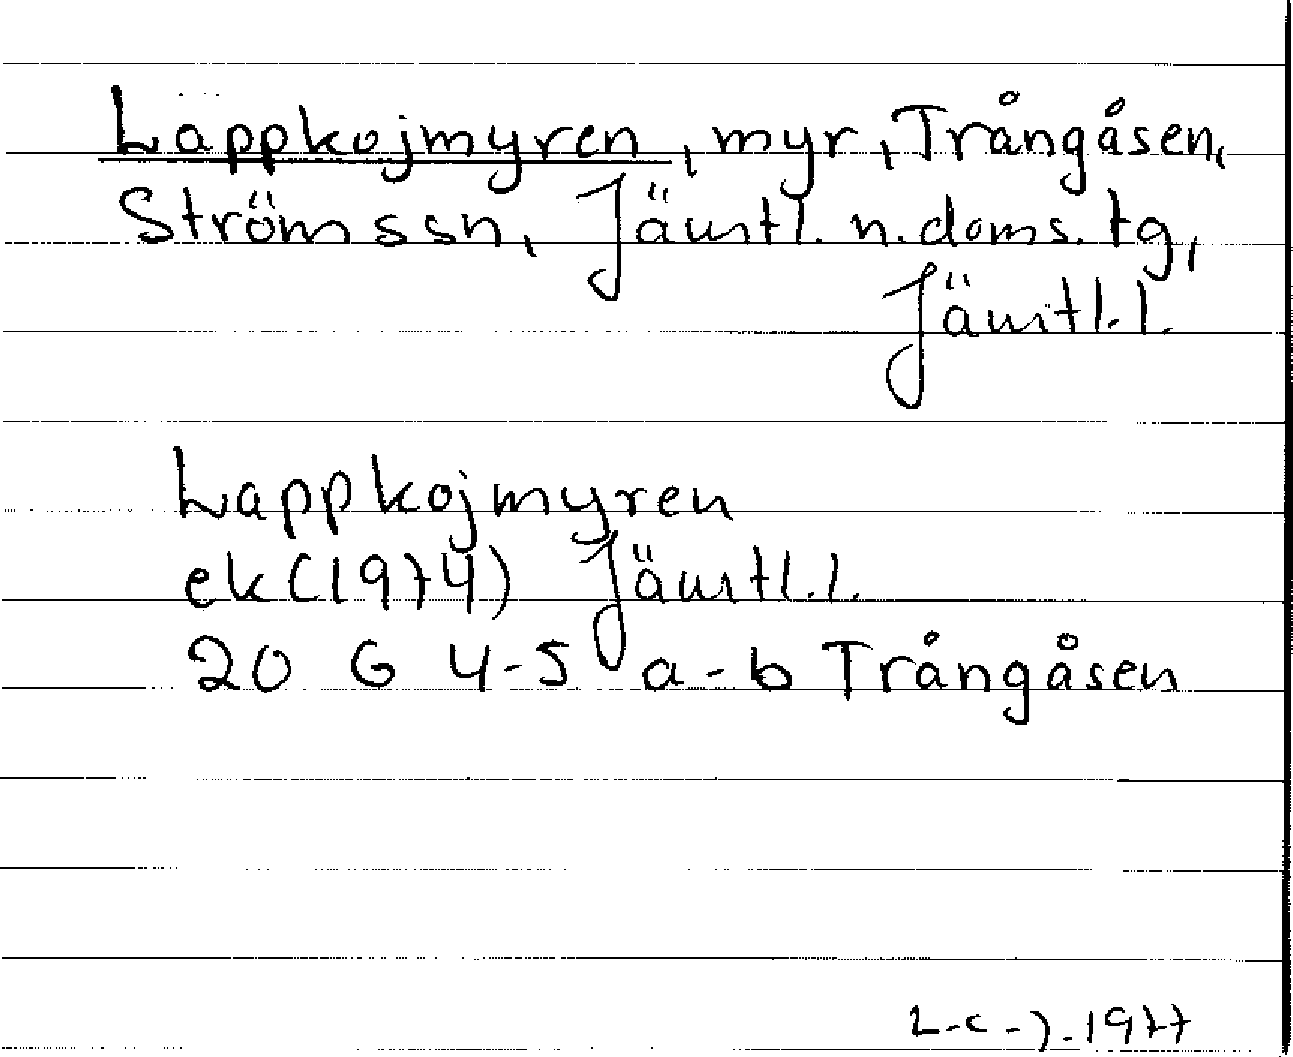 Lappkojmyren, myr, Trångåsen,
Ströms sn, Jämtl. n. doms. tg,
Jämtl. l.
Lappkojmyren
ek (1974) Jämtl. l.
20 G 4-5 a-b Trångåsen
L-C-J. 1977